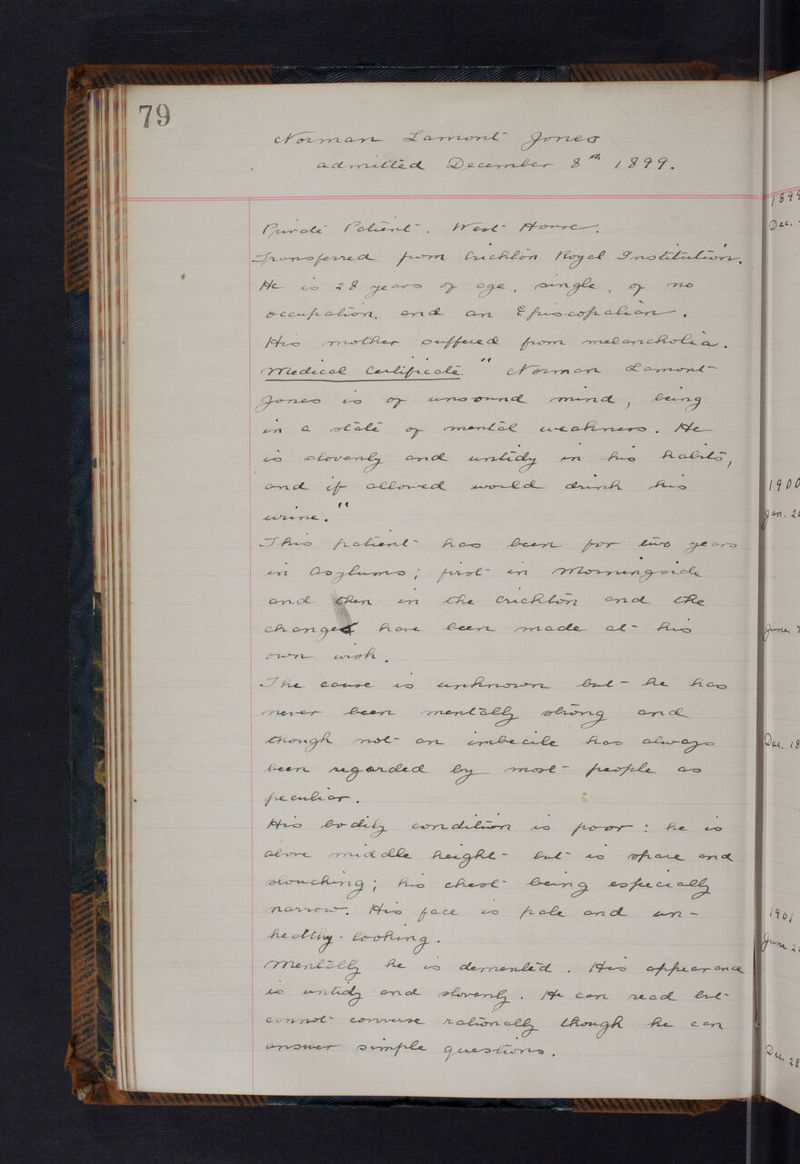 79
Norman Lamont Jones
admitted December 8th 1899.
Private Patient. West House.
Transferred from Crichton Royal Institution.
He is 28 years of age, single, of no
occupation, and an Episcopalian.
His mother suffered from melancholia.
Medical Certificate. "Norman Lamont
Jones is of unsound mind, being
in a state of mental weakness. He
is slovenly and untidy in his habits,
and if allowed would drink his
urine."
This patient has been for two years
in Asylums; first in Morningside
and then in the Crichton and the
changes have been made at his
own wish.
The cause is unknown but he has
never been mentally strong and
though not an imbecile has always
been regarded by most people as
peculiar.
His bodily condition is poor: he is
above middle height but is spare and
slouching; his chest being especially
narrow. His face is pale and un-
healthy-looking.
Mentally he is demented. His appearance
is untidy and slovenly. He can read but
cannot converse rationally though he can
answer simple questions.
1899
Dec.
1900
Jan. 2
June
Dec. 18
1901
June 2
Dec. 28